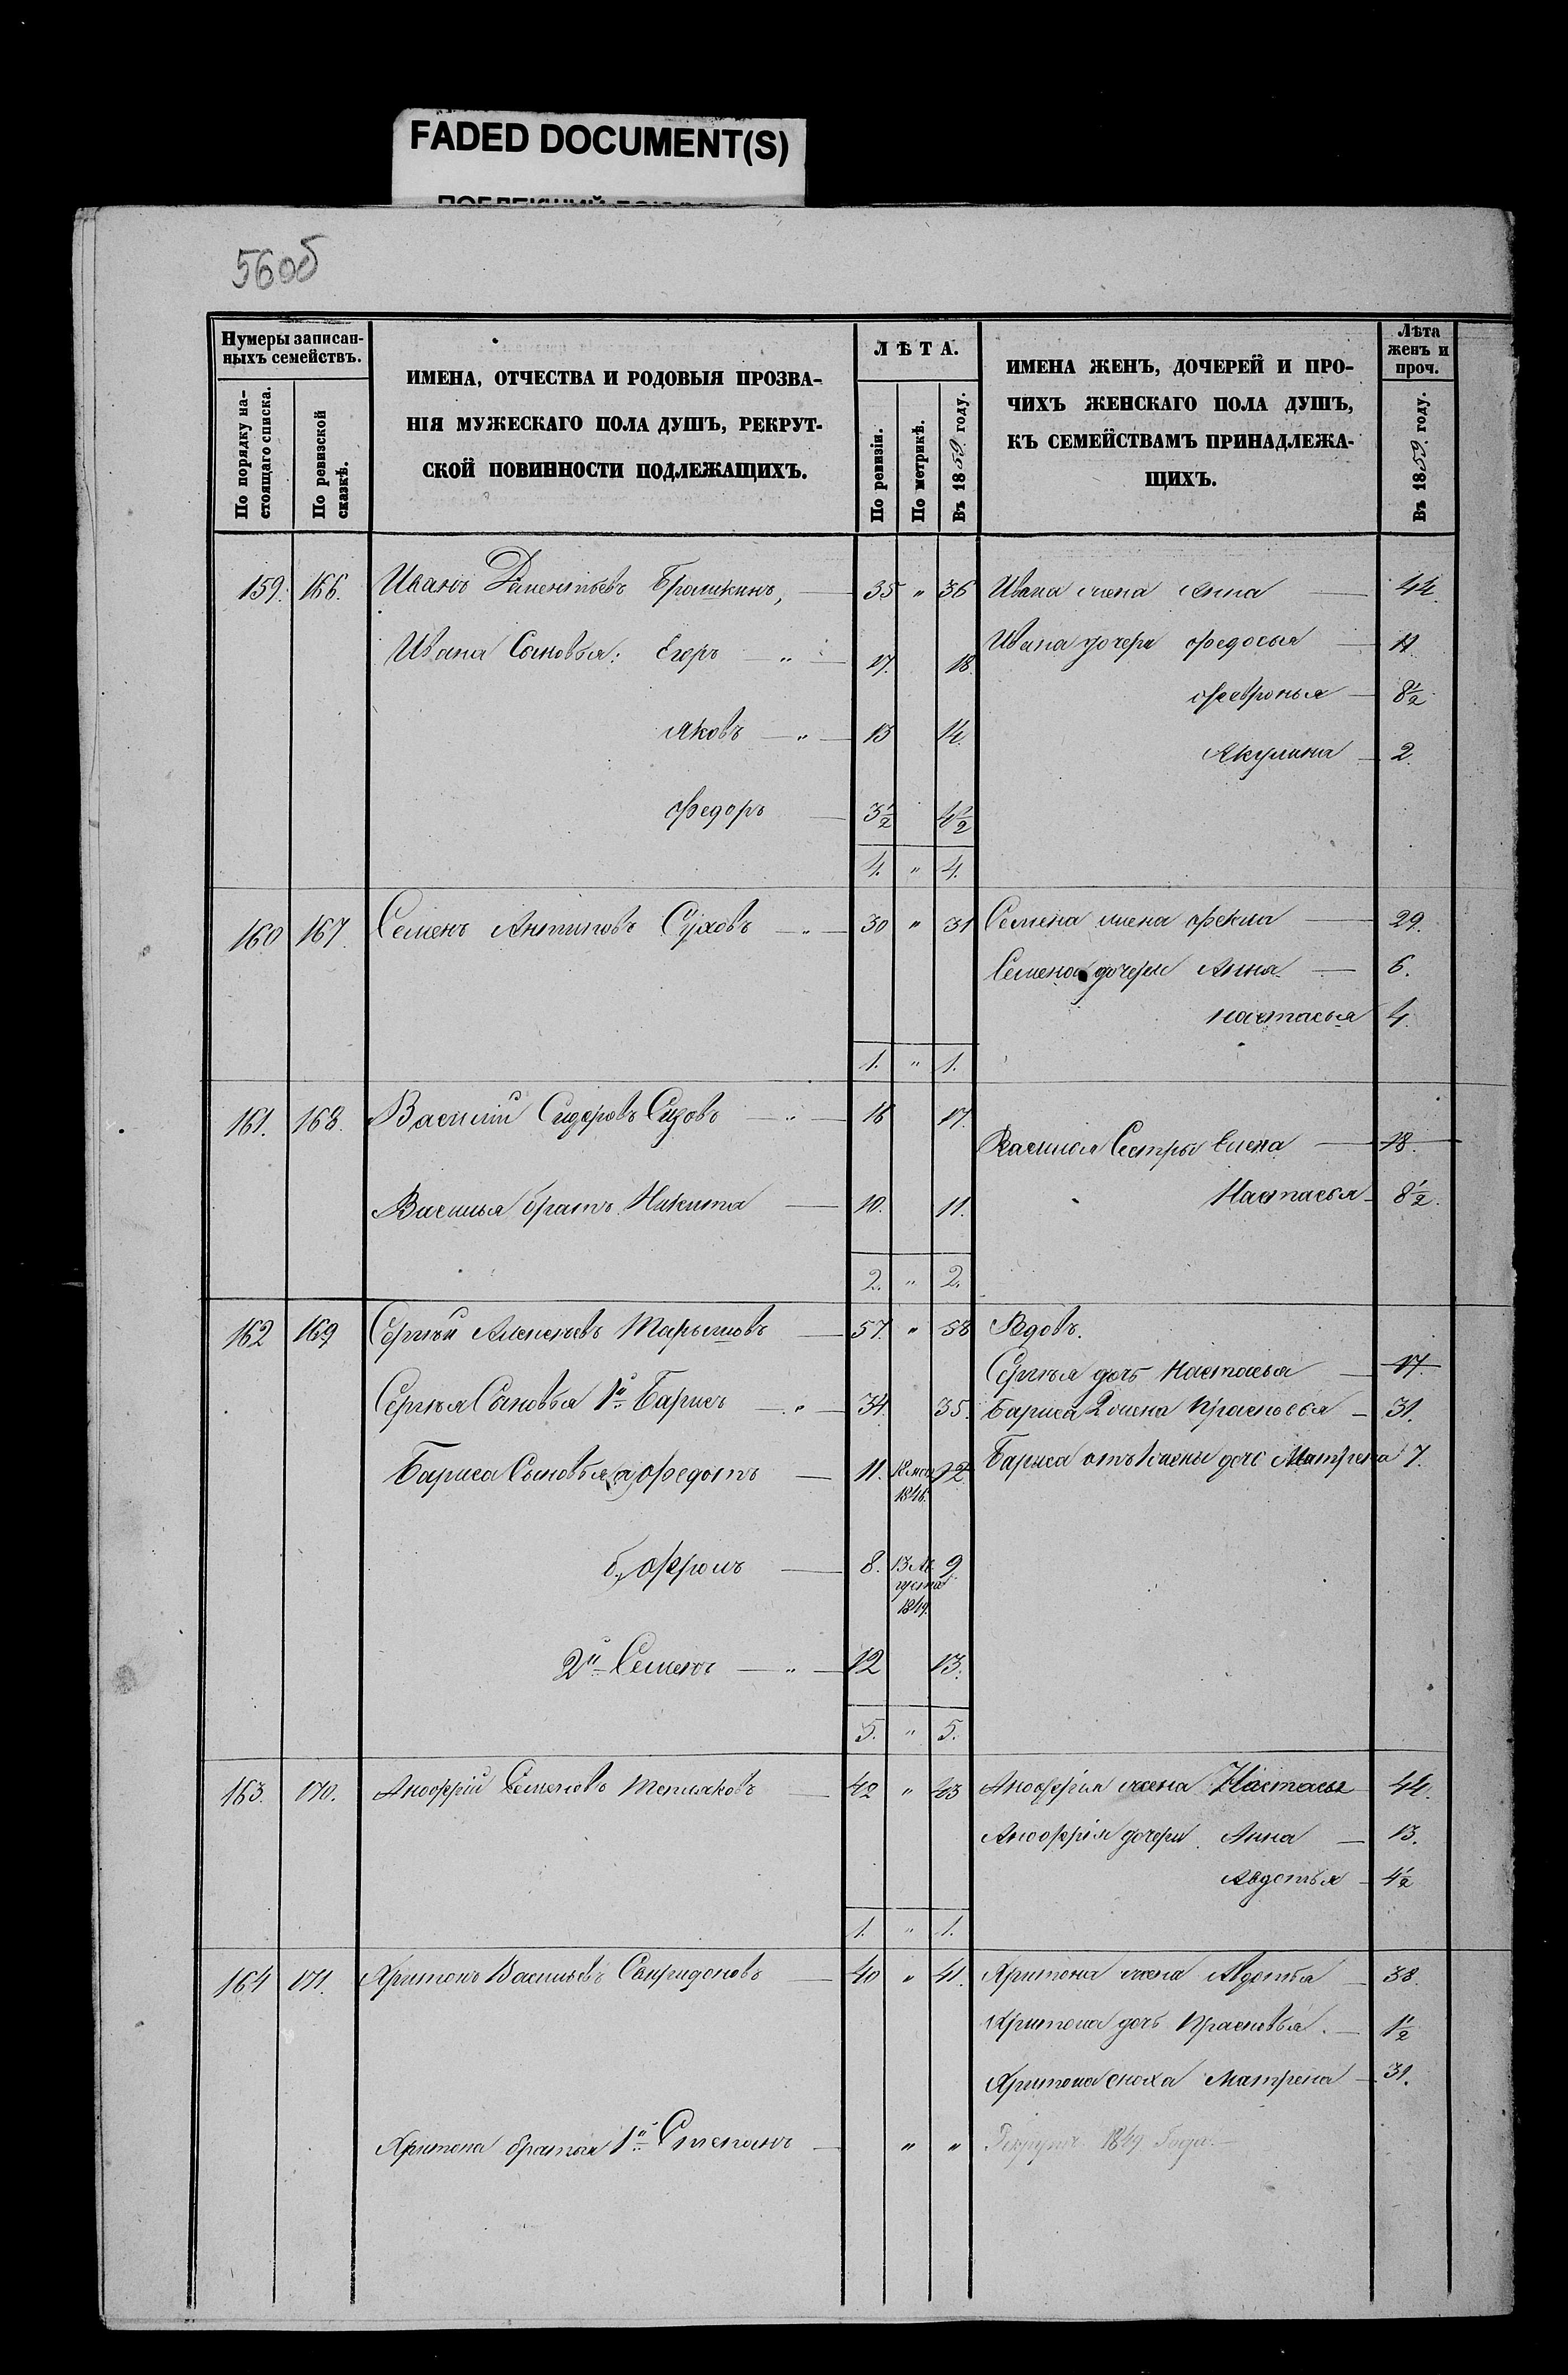 FADED DOCUMENT(S)
56об
Нумеры записан-
ныхъ семействъ.
По порядку на-
стоящаго списка.
По ревизской
сказкѣ.
ИМЕНА, ОТЧЕСТВА И РОДОВЫЯ ПРОЗВА-
НІЯ МУЖЕСКАГО ПОЛА ДУШЪ, РЕКРУТ-
СКОЙ ПОВИННОСТИ ПОДЛЕЖАЩИХЪ.
ЛѢТА.
По ревизіи.
По метрикѣ.
Въ 1859 году.
ИМЕНА ЖЕНЪ, ДОЧЕРЕЙ И ПРО-
ЧИХЪ ЖЕНСКАГО ПОЛА ДУШЪ,
КЪ СЕМЕЙСТВАМЪ ПРИНАДЛЕЖА-
ЩИХЪ.
Лѣта
женъ и
проч.
Въ 1859 году.
159. 166. Иванъ Дементьевъ 35 " 36 Ивана жена Анна 44.
Ивана Сыновья: Егоръ — " — 17. 18. Ивана дочери Федосья 11
Февронья 8½
Яковъ — " — 13 14.
Акулина 2.
Федоръ — 3½ 4½
4. " 4.
160 167. Семенъ Антиповъ Суховъ — " — 30 " 31 Семена жена Фекла 29.
Семена дочери Анна 6.
Настасья 4.
1. " 1.
161. 168. Василий Сидоровъ Сизовъ — " — 16 17.
Василья Сестры Елена 18.
Василья братъ Никита — 10. 11. Настасья 8½.
2. " 2.
162 169 Сергѣй Алексѣевъ 57. " 58 Вдовъ.
Сергѣя дочь Настасья 17.
Сергѣя Сыновья 1й Барисъ — " — 34. 35. Бариса 2 жена Прасковья 31.
Бариса Сыновья а) Федотъ — 11. 12 Бариса отъ 1 жены дочь Матрена 7.
1846.
б) Фролъ — 8. 13 Ав 9.
густа
1849.
2й Семенъ — " — 12 13.
5. " 5.
163. 170. Аноффрій Семеновъ Тепляковъ — 42 " 43 Аноффрія жена Настасья 44.
Аноффрія дочери Анна 13.
Авдотья 4½
1. " 1.
164 171. Харитонъ Васильевъ Свиридоновъ — 40 " 41. Харитона жена Авдотья 38.
Харитона дочь Прасковья 1½
Харитона сноха Матрена 31.
Харитона братья 1й Степанъ — " " Рекрутъ 1849 Года.